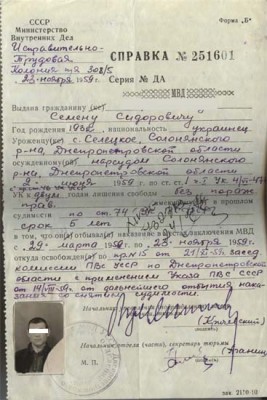 СССР
Министерство
Внутренних Дел
Форма „Б“
Исправительно-
Трудовая
Колония
23 ноября 1959 г.
СПРАВКА № 251601
Серия № ДА
МВД
Выдана гражданину
Семену Сидоровичу
Год рождения национальность украинец
Уроженцу с. Селецкое, Солонянского
р-на Днепропетровской области
осужденному нарсудом Солонянского
р-на, Днепропетровской области
2 июня 1959 г. по
УК к двум годам лишения свободы без пораж.
прав
судимости по ст. 74
срок 5 лет
в том, что он отбывал наказание в местах заключения МВД
с 29 марта 1959 г. по 23 ноября 1959 г.
откуда освобожден по пр. № 15 от 21/XI-59г. засед.
комиссии ПВС УССР по Днепропетровской
области с применением Указа ПВС СССР
от 14/VIII-59г. от дальнейшего отбытия нака-
зания со снятием судимости.
Начальник
Начальник отдела (части), секретарь тюрьмы
М. П.